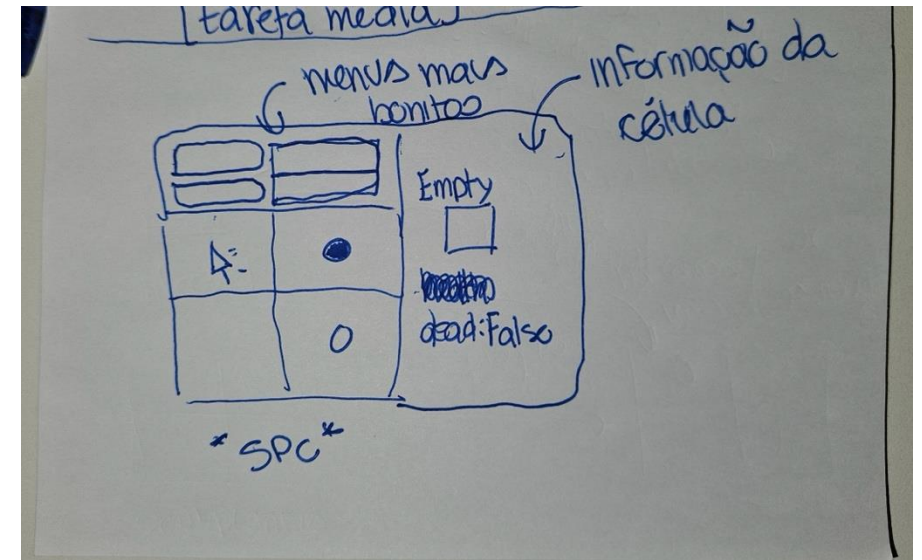 [tarefa media]
menus mais
bonitos
informação da
célula
Empty
dead:False
*SPC*